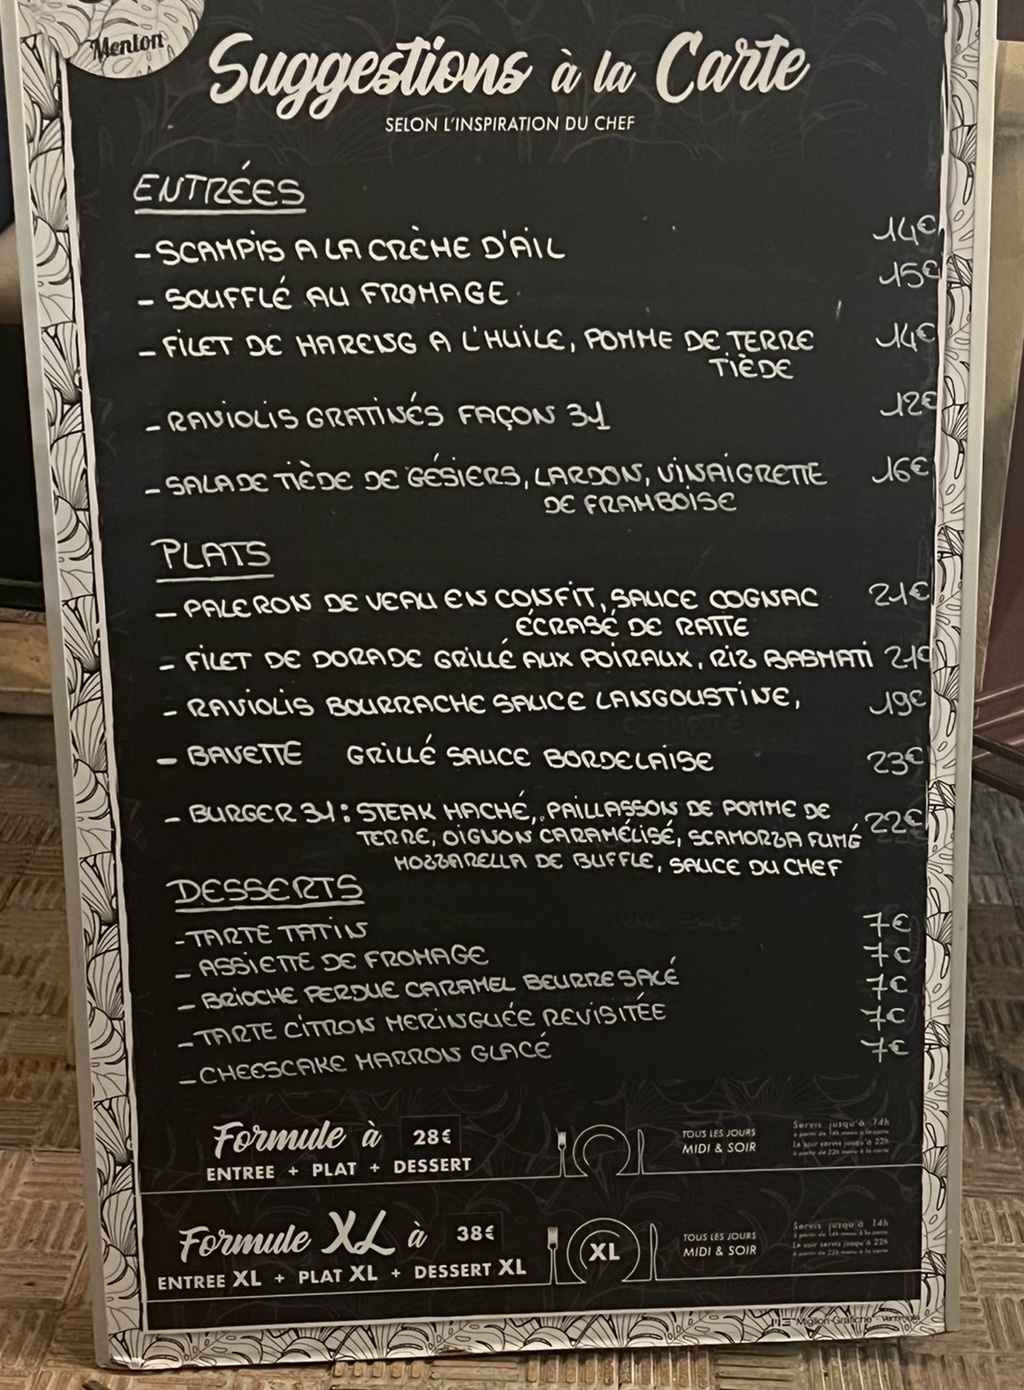 Menton
Suggestions à la Carte
SELON L'INSPIRATION DU CHEF
ENTRÉES
- SCAMPIS A LA CRÈME D'AIL 14€
- SOUFFLÉ AU FROMAGE 15€
- FILET DE HARENG A L'HUILE, POMME DE TERRE 14€
TIÈDE
- RAVIOLIS GRATINÉS FAÇON 31 12€
- SALADE TIÈDE DE GÉSIERS, LARDON, VINAIGRETTE 16€
DE FRAMBOISE
PLATS
- PALERON DE VEAU EN CONFIT, SAUCE COGNAC 21€
ÉCRASÉ DE RATTE
- FILET DE DORADE GRILLÉ AUX POIRAUX, RIZ BASMATI 21€
- RAVIOLIS BOURRACHE SAUCE LANGOUSTINE, 19€
- BAVETTE GRILLÉ SAUCE BORDELAISE 23€
- BURGER 31 : STEAK HACHÉ, PAILLASSON DE POMME DE 22€
TERRE, OIGNON CARAMÉLISÉ, SCAMORZA FUMÉ
MOZZARELLA DE BUFFLE, SAUCE DU CHEF
DESSERTS
- TARTE TATIN 7€
- ASSIETTE DE FROMAGE 7€
- BRIOCHE PERDUE CARAMEL BEURRE SALÉ 7€
- TARTE CITRON MERINGUÉE REVISITÉE 7€
- CHEESCAKE MARRON GLACÉ 7€
Formule à 28€
ENTREE + PLAT + DESSERT
TOUS LES JOURS
MIDI & SOIR
Servis jusqu'à 14h
à partir de 14h menu à la carte
Le soir servis jusqu'à 22h
à partir de 22h menu à la carte
Formule XL à 38€
ENTREE XL + PLAT XL + DESSERT XL
XL
TOUS LES JOURS
MIDI & SOIR
Servis jusqu'à 14h
à partir de 14h menu à la carte
Le soir servis jusqu'à 22h
à partir de 22h menu à la carte
Migliori Grafiche